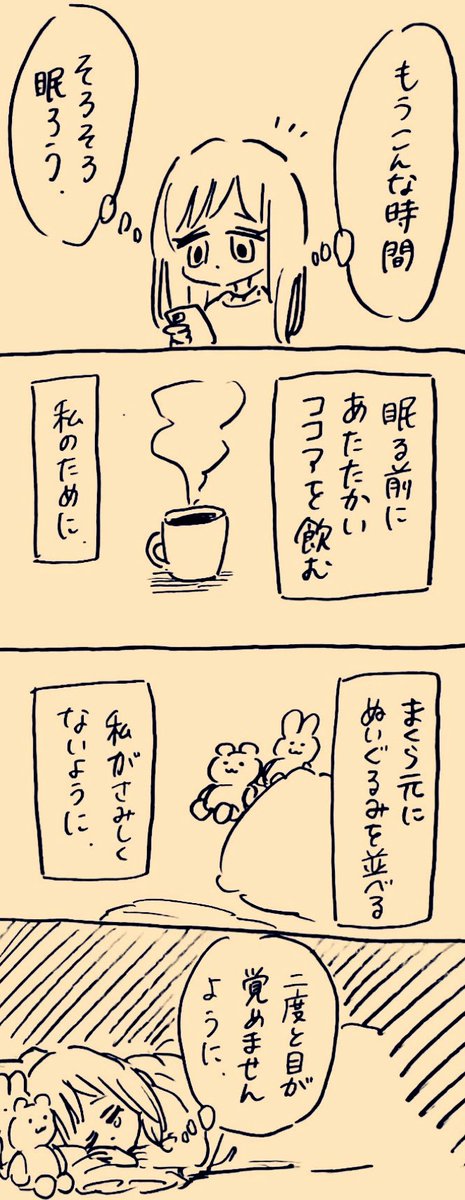 もうこんな時間
そろそろ
眠ろう.
眠る前に
あたたかい
ココアを飲む
私のために.
まくら元に
ぬいぐるみを並べる
私がさみしく
ないように.
二度と目が
覚めません
ように.